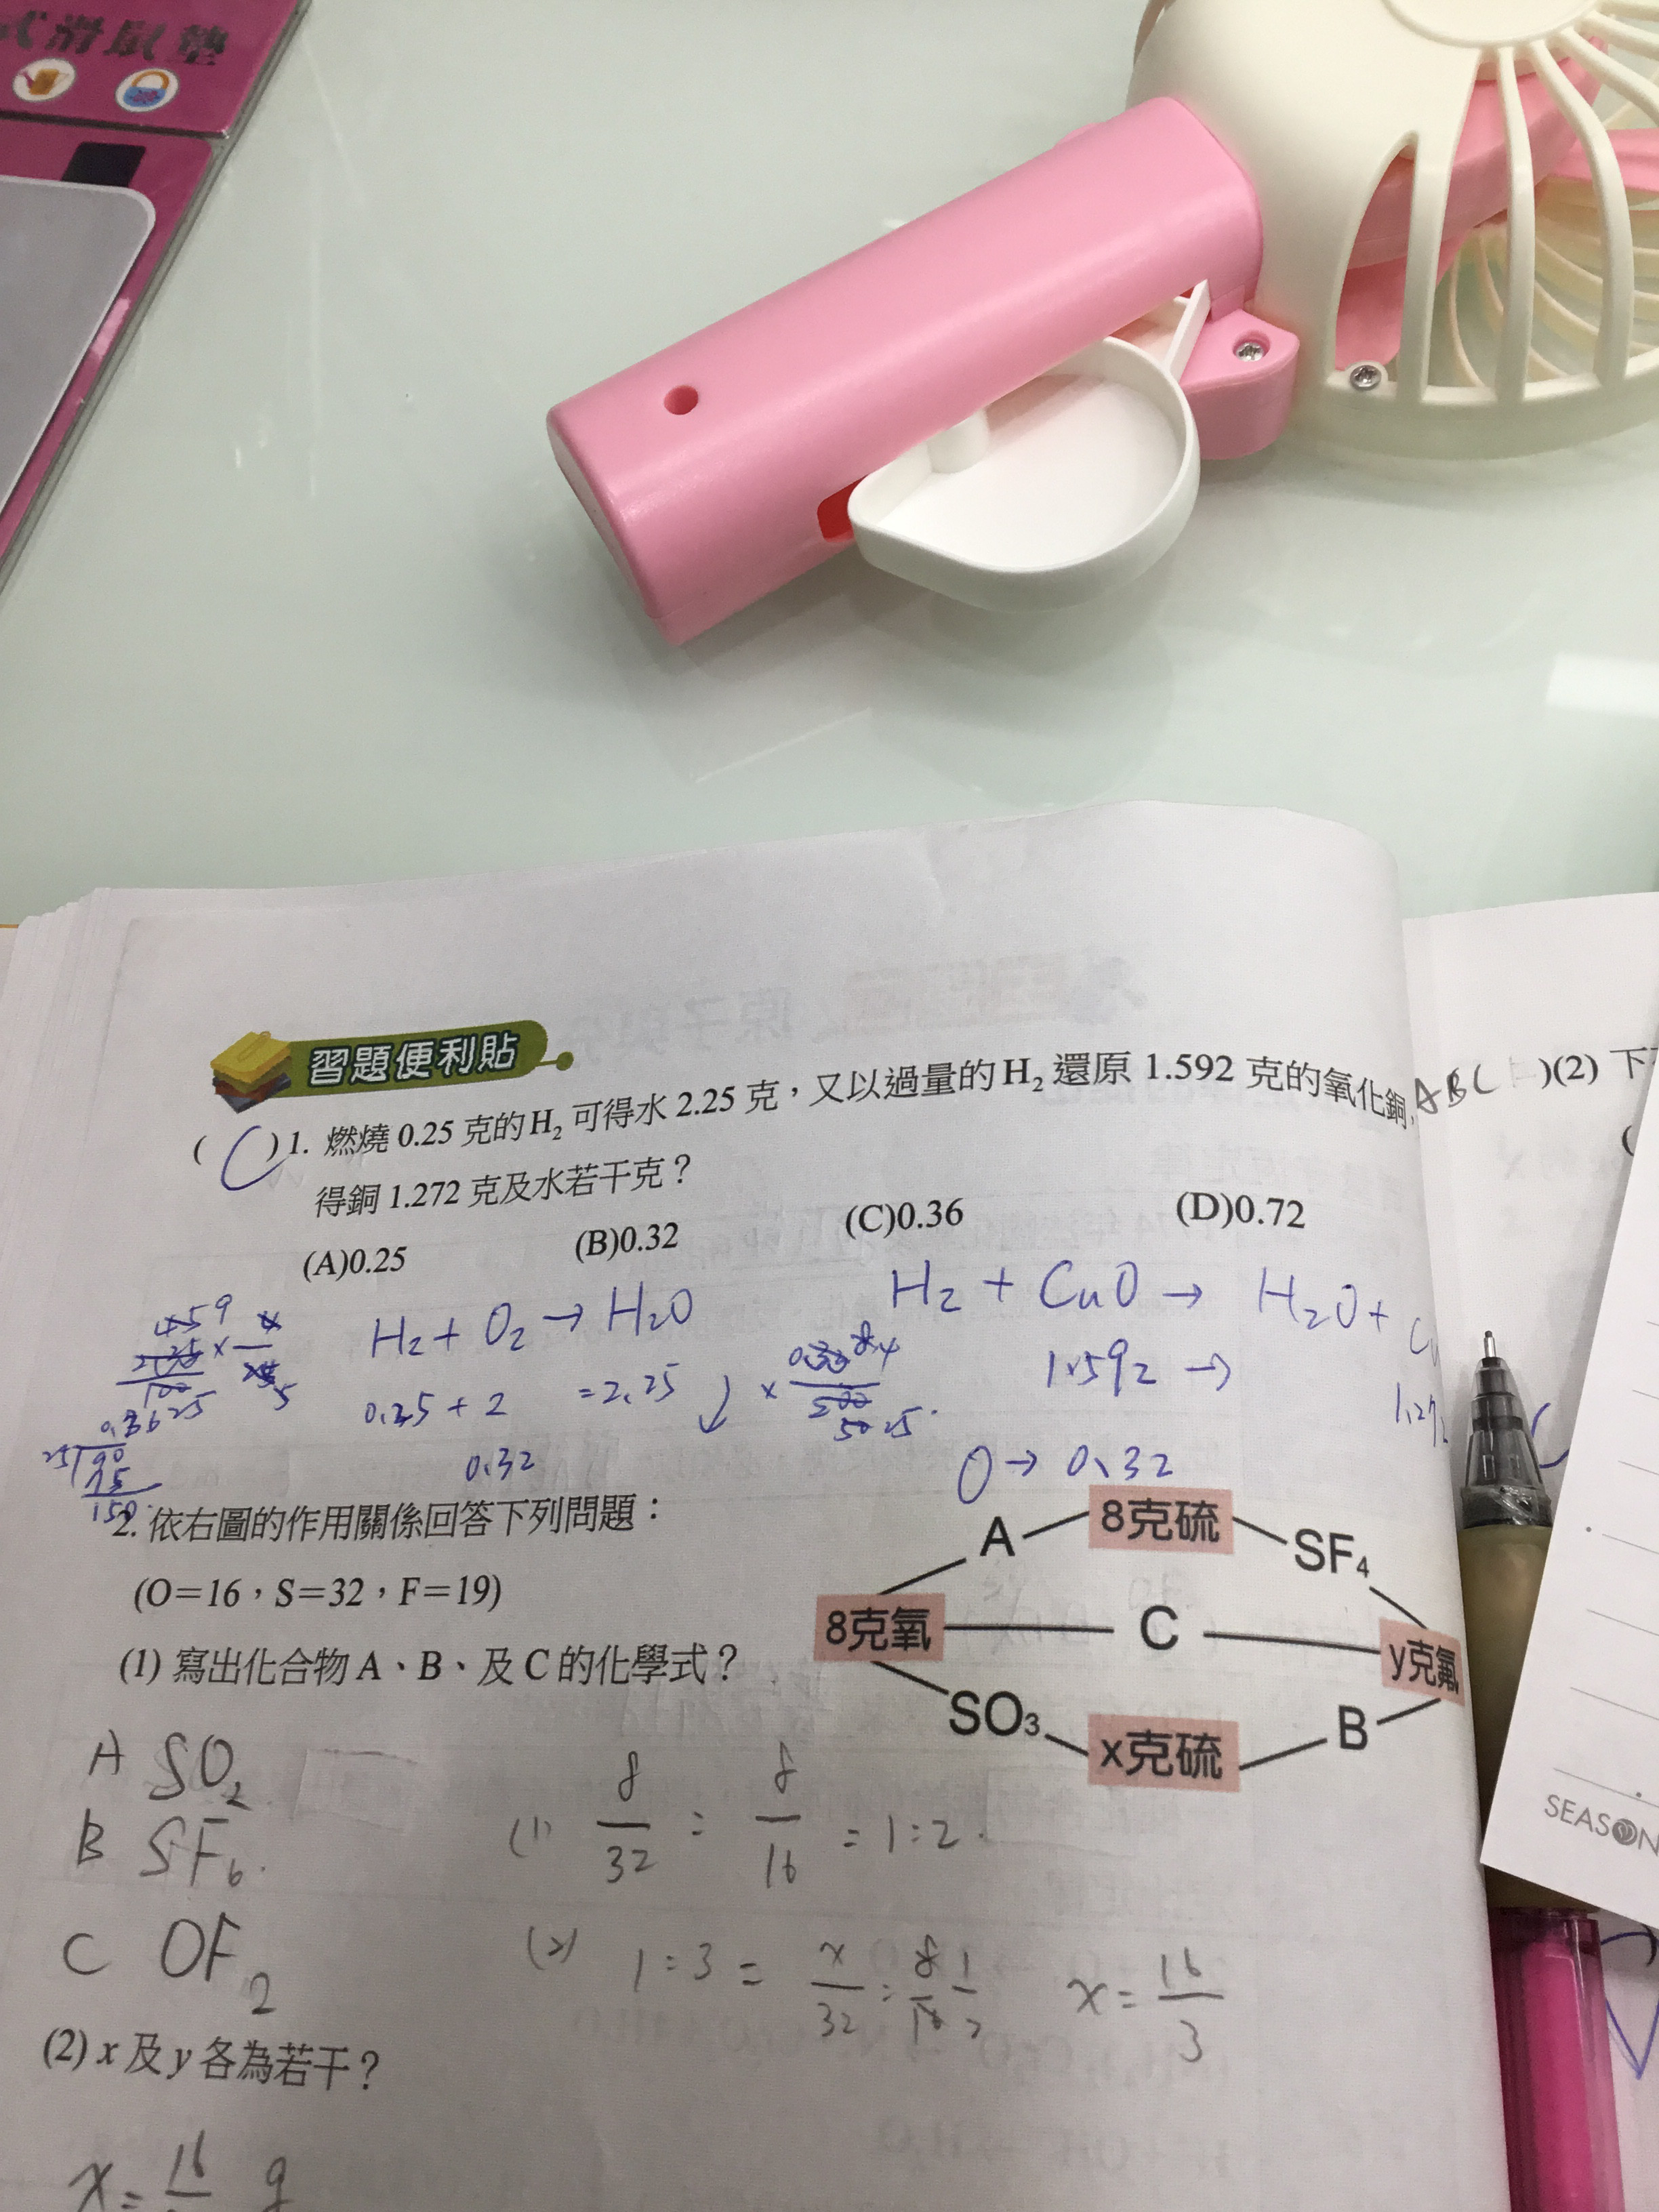 式滑鼠墊
習題便利貼
( C )1. 燃燒 0.25 克的 H₂ 可得水 2.25 克，又以過量的 H₂ 還原 1.592 克的氧化銅，
得銅 1.272 克及水若干克？
(A)0.25 (B)0.32 (C)0.36 (D)0.72
ABC )(2) 下
H₂ + O₂ → H₂O
0.25 + 2 = 2.25
0.32
H₂ + CuO → H₂O + Cu
1.592 →
1.272
O → 0.32
0.36
25
90
75
150
2. 依右圖的作用關係回答下列問題：
(O＝16，S＝32，F＝19)
(1) 寫出化合物 A、B、及 C 的化學式？
A 8克硫 SF₄
8克氧 C y克氟
SO₃ x克硫 B
A SO₂
B SF₆.
C OF₂
(1) 8/32 : 8/16 = 1:2.
(2) 1:3 = x/32 : 1/2 x = 16/3
(2) x 及 y 各為若干？
x = 16
SEASON